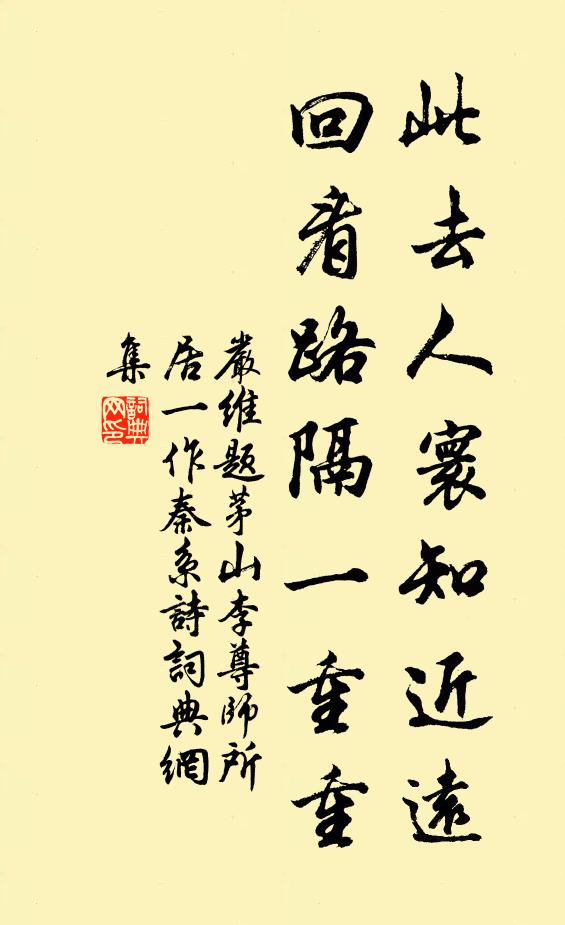 此去人寰知近遠
回看路隔一重重
嚴維題茅山李尊師所
居一作秦系詩詞典網
集
詞典網印